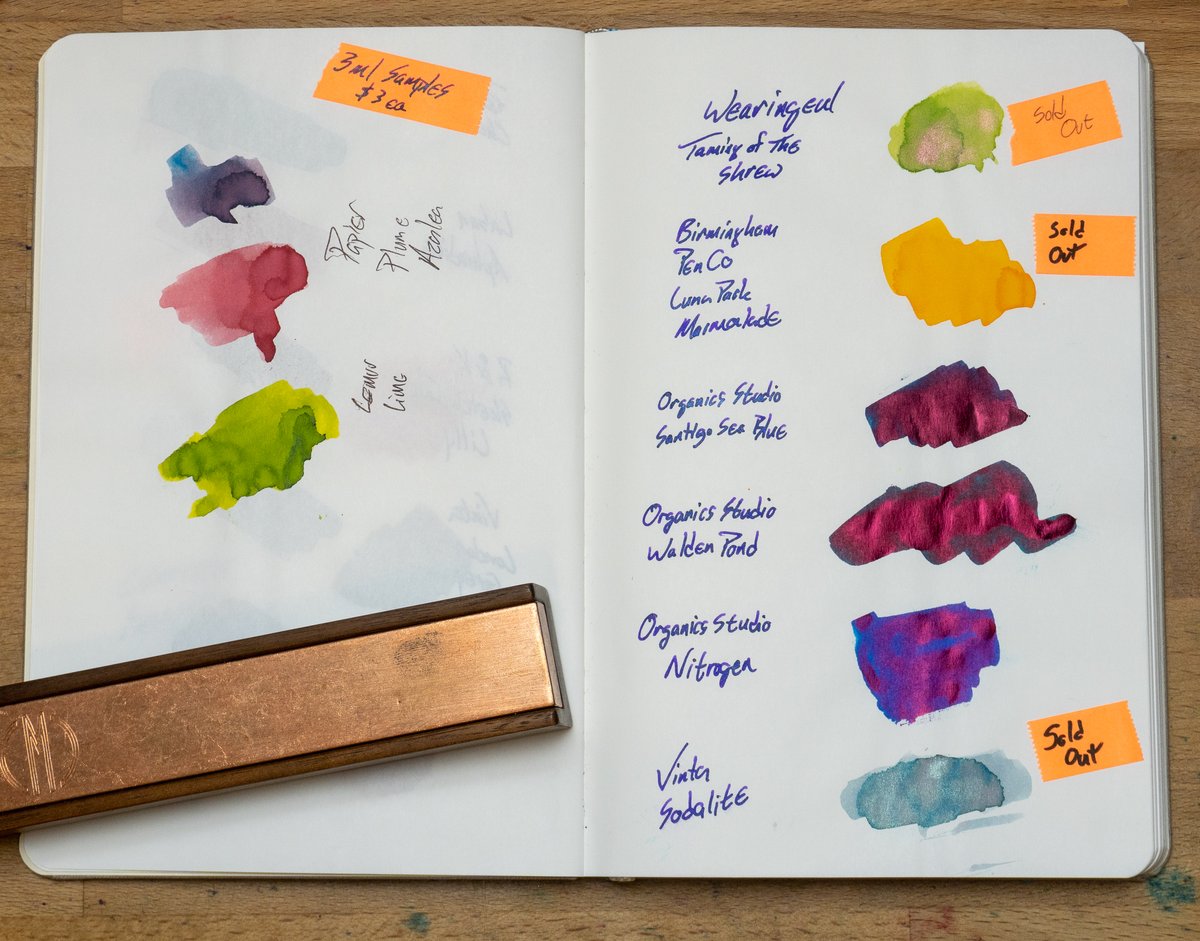 3ml Samples
$3 ea
Papier
Plume
Azalea
Lemur
Lime
Wearingeul
Taming of The
Shrew
Sold
Out
Birmingham
Pen Co
Luna Park
Marmalade
Sold
Out
Organics Studio
Santigo Sea Blue
Organics Studio
Walden Pond
Organics Studio
Nitrogen
Vinta
Sodalite
Sold
Out